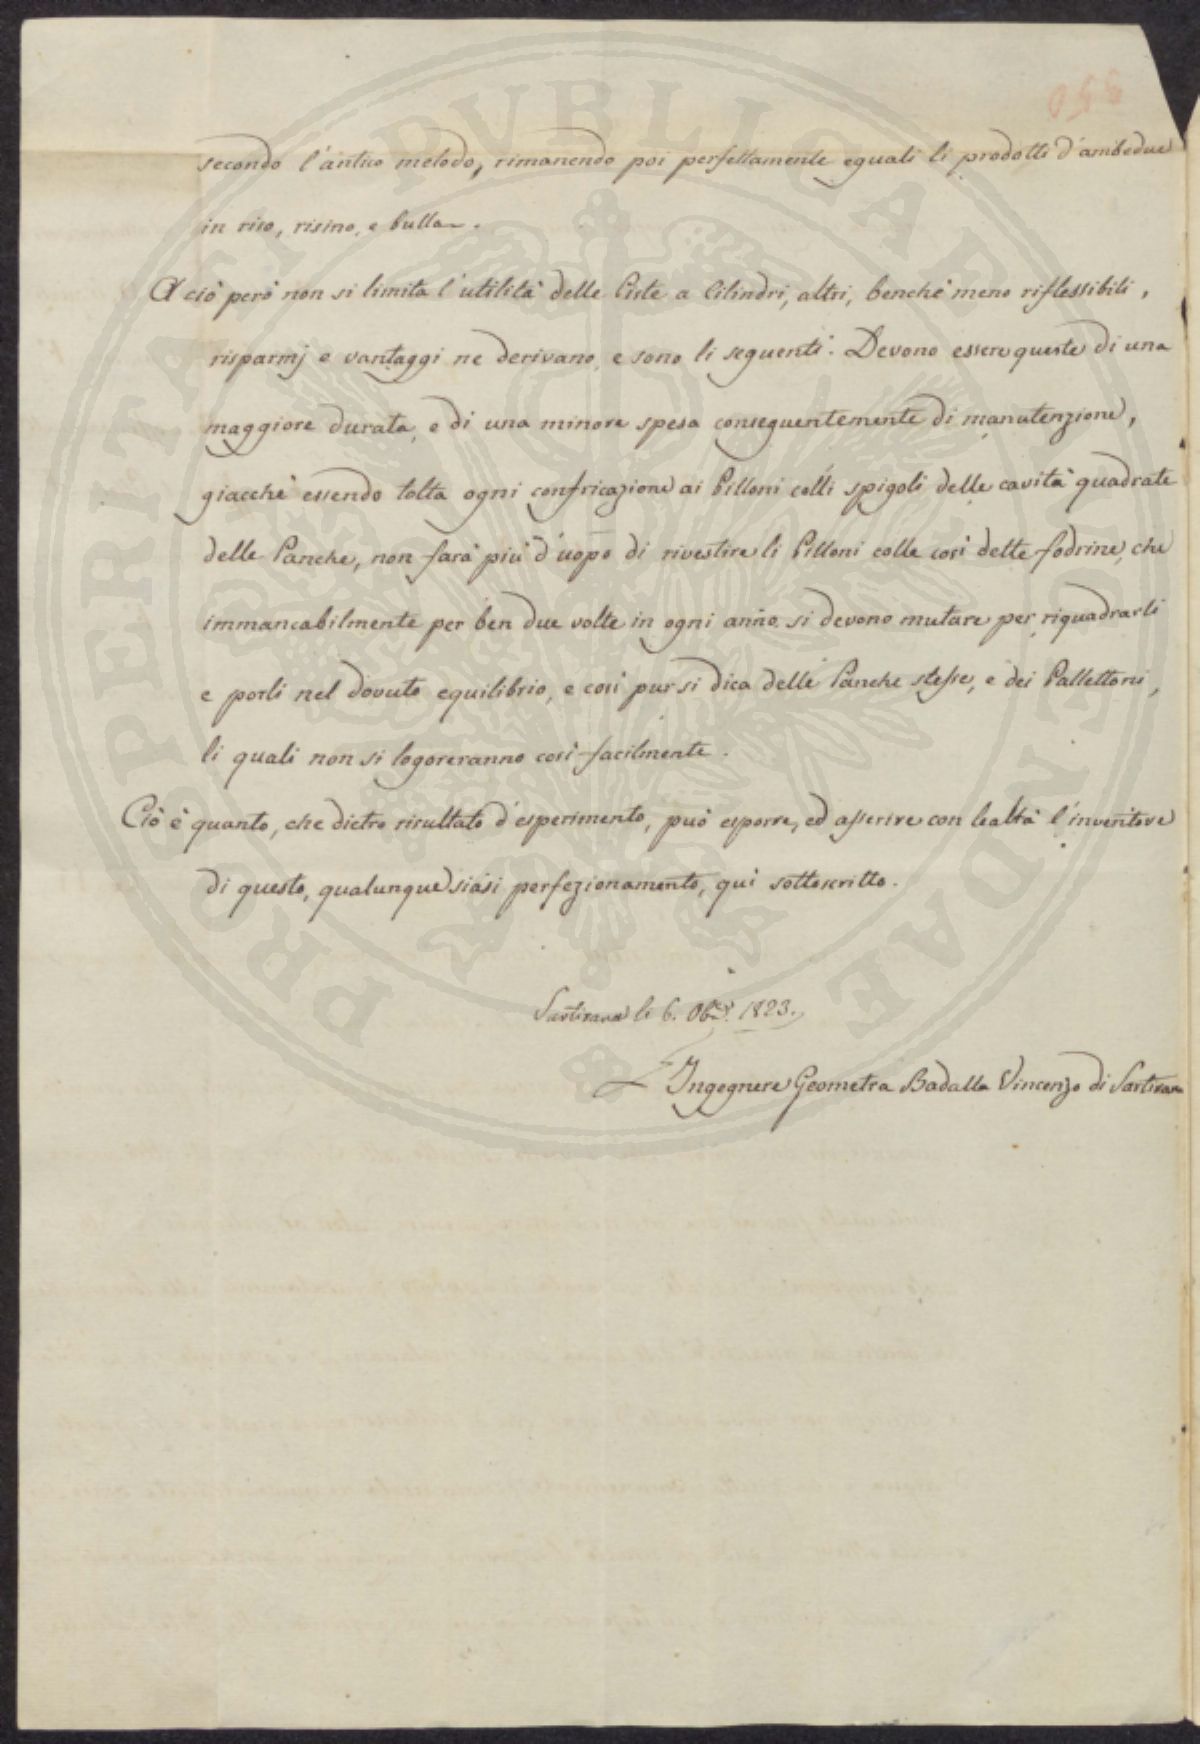 350
secondo l'antico metodo, rimanendo poi perfettamente eguali li prodotti d'ambedue
in riso, risino, e bulla.
A ciò però non si limita l'utilità delle Piste a Cilindri, altri, benchè meno riflessibili,
risparmj e vantaggi ne derivano, e sono li seguenti: Devono essere queste di una
maggiore durata, e di una minore spesa conseguentemente di manutenzione,
giacchè essendo tolta ogni confricazione ai Pilloni colli spigoli delle cavità quadrate
delle Panche, non farà più d'uopo di rivestire li Pilloni colle così dette fodrine, che
immancabilmente per ben due volte in ogni anno si devono mutare per riquadrarli
e porli nel dovuto equilibrio, e così pur si dica delle Panche stesse, e dei Pallettoni,
li quali non si logoreranno così facilmente.
Ciò è quanto, che dietro risultato d'esperimento, può esporre, ed asserire con lealtà l'inventore
di questo, qualunque siasi perfezionamento, quì sottoscritto.
Sartirana li 6. 1823.
Ingegnere Geometra Badalla Vincenzo di Sartirana
PROSPERITATI PVBLICAE AVGENDAE